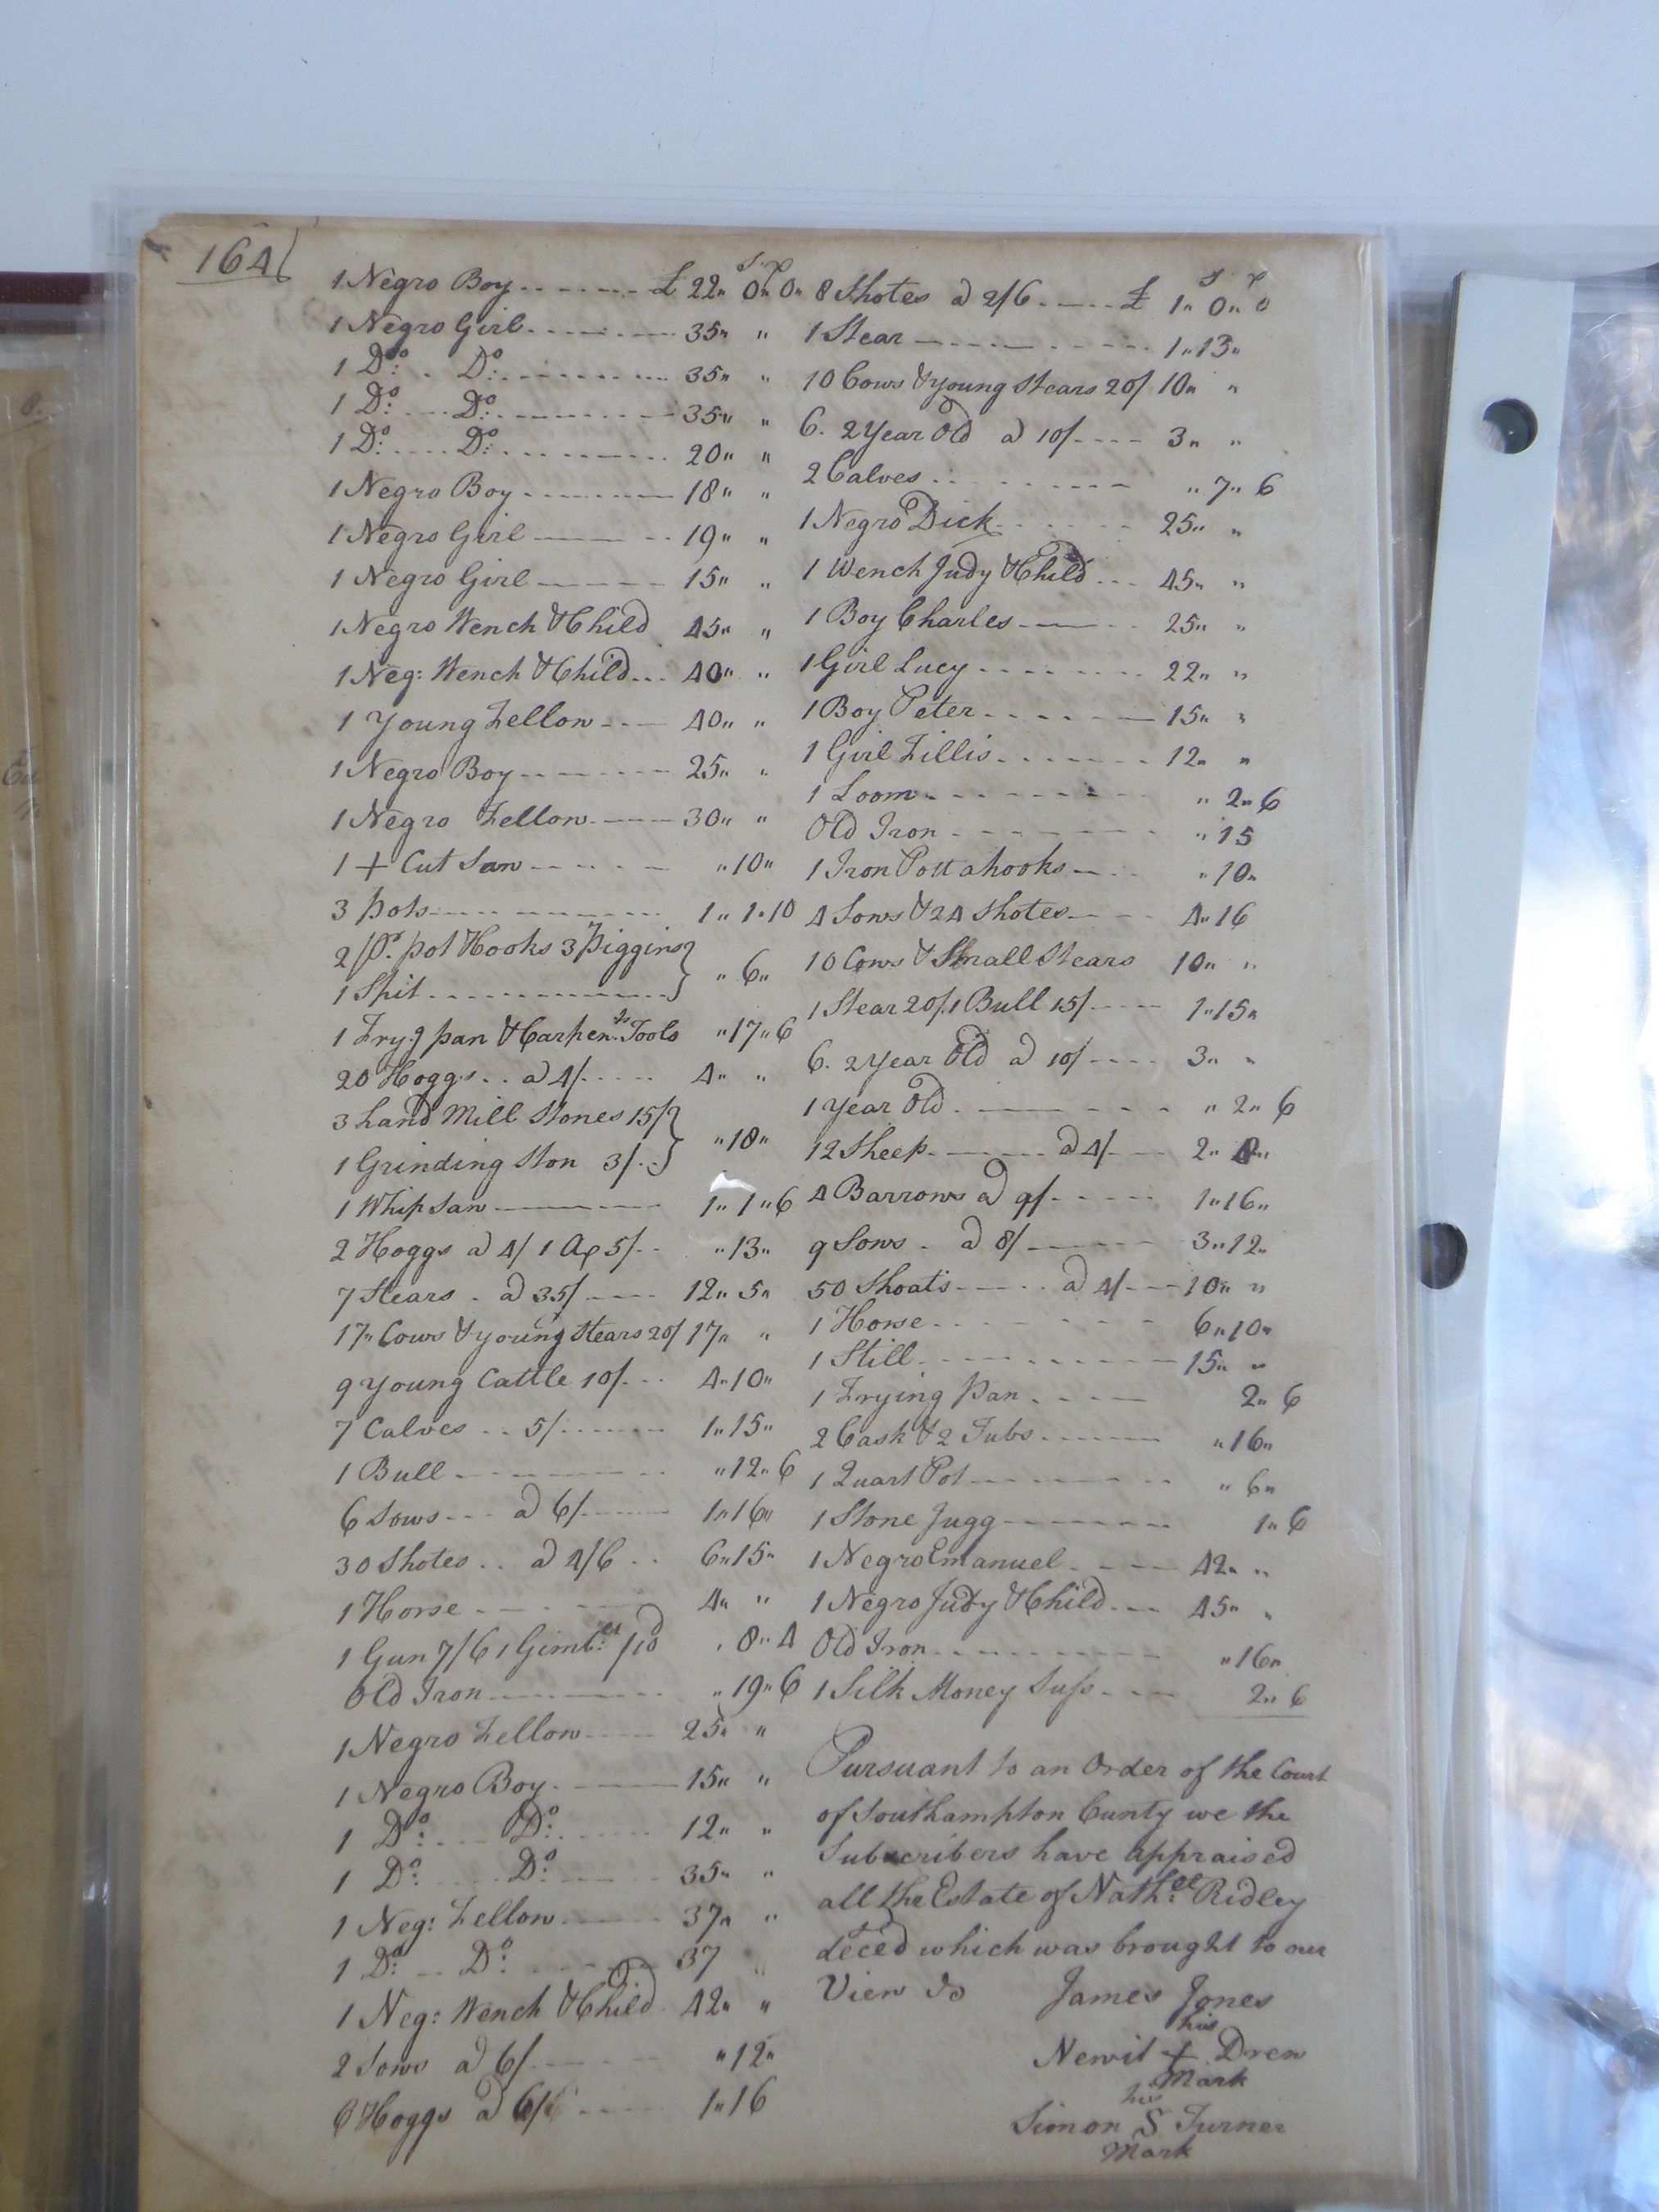 164
S. P
1 Negro Boy -------- £ 22" 0" 0"
1 Negro Girl ------- 35" "
1 Do: . Do: -------- 35" "
1 Do: ... Do: ------- 35" "
1 Do: .... Do: ------- 20" "
1 Negro Boy ------- 18" "
1 Negro Girl ------- 19" "
1 Negro Girl ------- 15" "
1 Negro Wench & Child 45" "
1 Neg: Wench & Child... 40" "
1 Young Fellow ---- 40" "
1 Negro Boy ------- 25" "
1 Negro Fellow ----- 30" "
1 + Cut Saw ------ "10"
3 pots ------------ 1" 1"10
2 Pr. pot Hooks 3 piggins }
1 Spit ------------- } " 6"
1 Fry:g pan & Carpen:rs Tools "17"6
20 Hoggs .. a 4/ ..... 4" "
3 hand Mill Stones 15/ }
1 Grinding Ston 3/ .. } "18"
1 Whip Saw ------- 1" 1"6
2 Hoggs a 4/ 1 a 5/ -- "13"
7 Stears . a 35/ ---- 12" 5"
17" Cows & young Stears 20/ 17" "
9 Young Cattle 10/ --- 4"10"
7 Calves .. 5/ ------ 1"15"
1 Bull ----------- "12"6
6 Sows --- a 6/ ----- 1"16"
30 Shotes .. a 4/6 .. 6"15"
1 Horse -------- 4" "
1 Gun 7/6 1 Gimb:et /10 " 8"4
Old Iron --------- "19"6
1 Negro Fellow ---- 25" "
1 Negro Boy ------- 15" "
1 Do: .... Do: ------ 12" "
1 Do: .... Do: ------ 35" "
1 Neg: Fellow ------ 37" "
1 Do: ... Do: ------- 37 "
1 Neg: Wench & Child 42" "
2 Sows a 6/ ----- "12"
Hoggs a ---- 1"16
S P
8 Shotes a 2/6 ----- £ 1" 0" 0
1 Stear ----------- 1"13"
10 Cows & young Stears 20/ 10" "
6. 2 Year Old a 10/ ---- 3" "
2 Calves ---------- " 7" 6
1 Negro Dick ------ 25" "
1 Wench Judy & Child --- 45" "
1 Boy Charles ------ 25" "
1 Girl Lucy -------- 22" "
1 Boy Peter -------- 15" "
1 Girl Fillis -------- 12" "
1 Loom ---------- " 2"6
Old Iron --------- "15
1 Iron Pott ahooks ---- "10"
4 Sows & 24 Shotes ---- 4"16
10 Cows & Small Stears 10" "
1 Stear 20/ 1 Bull 15/ ---- 1"15"
6. 2 Year Old a 10/ ---- 3" "
1 Year Old. ------- " 2" 6
12 Sheep ------ a 4/ --- 2" 8"
4 Barrows a 9/ ----- 1"16"
9 Sows . a 8/ ------ 3"12"
50 Shoats ----- a 4/ --- 10" "
1 Horse --------- 6"10"
1 Still ----------- 15" "
1 Frying Pan . ---- 2" 6
2 Cask & 2 Tubs ------ "16"
1 Quart Pot -------- " 6"
1 Stone Jugg ------- 1" 6
1 Negro Emanuel ----- 42" "
1 Negro Judy & Child --- 45" "
Old Iron --------- "16"
1 Silk Money ---- 2" 6
Pursuant to an Order of the Court
of Southampton Cunty we the
Subscribers have appraised
all the Estate of Nath:ll Ridley
deced which was brought to our
View
James Jones
his
Newit + Drew
Mark
his
Simon S Turner
Mark